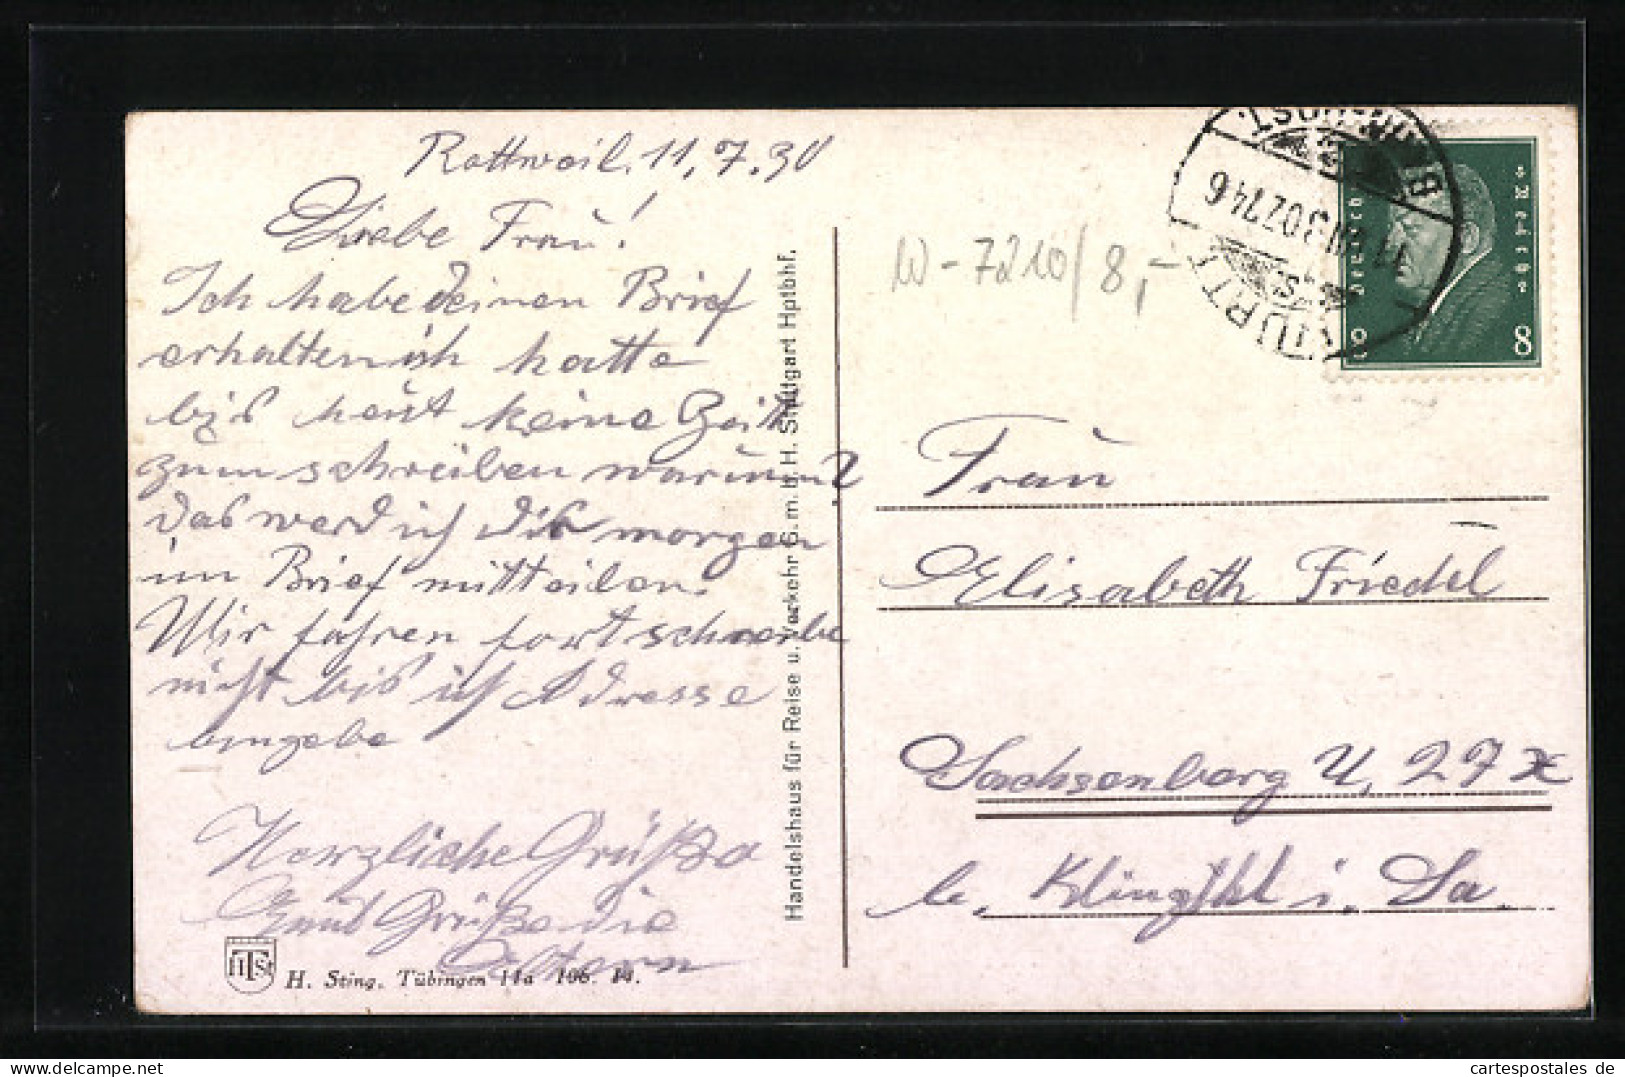 Rottweil. 11.7.30
Liebe Frau!
Ich habe deinen Brief
erhalten ich hatte
bis heut keine Zeit
zum schreiben warum?
das werd ich dir morgen
im Brief mitteilen.
Wir fahren fort schreibe
nicht bis ich Adresse
angebe
Herzliche Grüße
Emil Grüße die
Eltern
H. Sting, Tübingen 11a 106. 14.
Handelshaus für Reise u. Verkehr G. m. b. H. Stuttgart Hptbhf.
W-7210/8,-
BAHNPOST
11.VII.30 Z.746
Deutsches Reich
8 8
Frau
Elisabeth Friedel
Sachsenberg U, 27 x
b. Klingthl i. Sa.
www.cartespostales.de